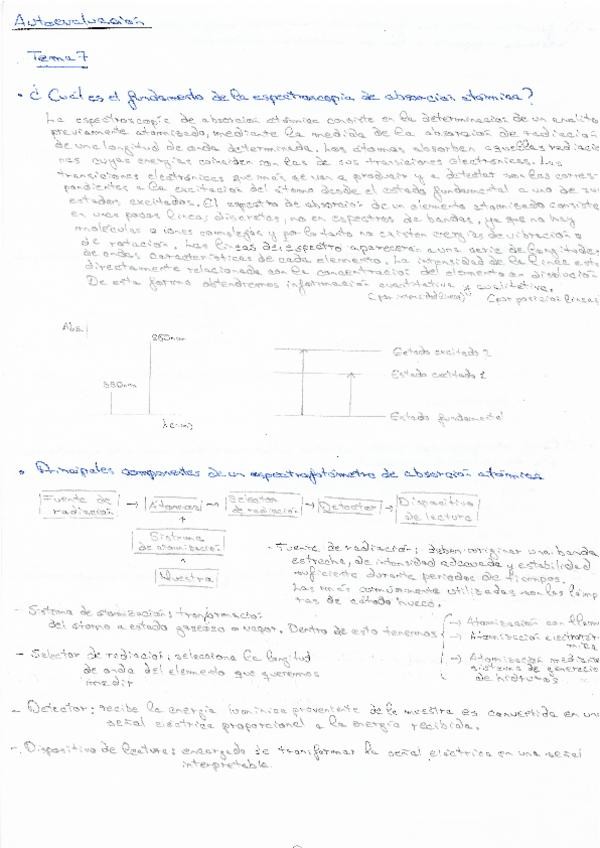 Autoevaluación
Tema 7
• ¿Cuál es el fundamento de la espectroscopía de absorción atómica?
La espectroscopía de absorción atómica consiste en la determinación de un analito
previamente atomizado, mediante la medida de la absorción de radiación
de una longitud de onda determinada. Los átomos absorben aquellas radiacio
nes cuyas energías coinciden con las de sus transiciones electrónicas. Las
transiciones electrónicas que más se van a producir y a detectar son las corres-
pondientes a la excitación del átomo desde el estado fundamental a uno de sus
estados excitados. El espectro de absorción de un elemento atomizado consiste
en unas pocas líneas discretas, no en espectros de bandas, ya que no hay
moléculas o iones complejos y por lo tanto no existen energías de vibración o
de rotación. Las líneas del espectro aparecerán a una serie de longitudes
de ondas características de cada elemento. La intensidad de la línea está
directamente relacionada con la concentración del elemento en disolución
De esta forma obtendremos información cuantitativa y cualitativa.
(por intensidad línea) (por posición líneas)
Abs.
880nm
λ(nm)
Estado excitado 2
Estado excitado 1
Estado fundamental
• Principales componentes de un espectrofotómetro de absorción atómica
Fuente de radiación → Átomos → Selector de radiación → Detector → Dispositivo de lectura
Sistema de atomización
Muestra
- Fuente de radiación: deben originar una banda
estrecha, de intensidad adecuada y estabilidad
suficiente durante periodos de tiempos.
Las más comúnmente utilizadas son las lámpa
ras de cátodo hueco.
- Sistema de atomización: transformación
del átomo a estado gaseoso o vapor. Dentro de esto tenemos
→ Atomización con llama
→ Atomización electrotér
mica
→ Atomización mediante
sistemas de generación
de hidruros
- Selector de radiación: selecciona la longitud
de onda del elemento que queremos
medir
- Detector: recibe la energía lumínica proveniente de la muestra es convertida en una
señal eléctrica proporcional a la energía recibida.
- Dispositivo de lectura: encargado de transformar la señal eléctrica en una señal
interpretable.